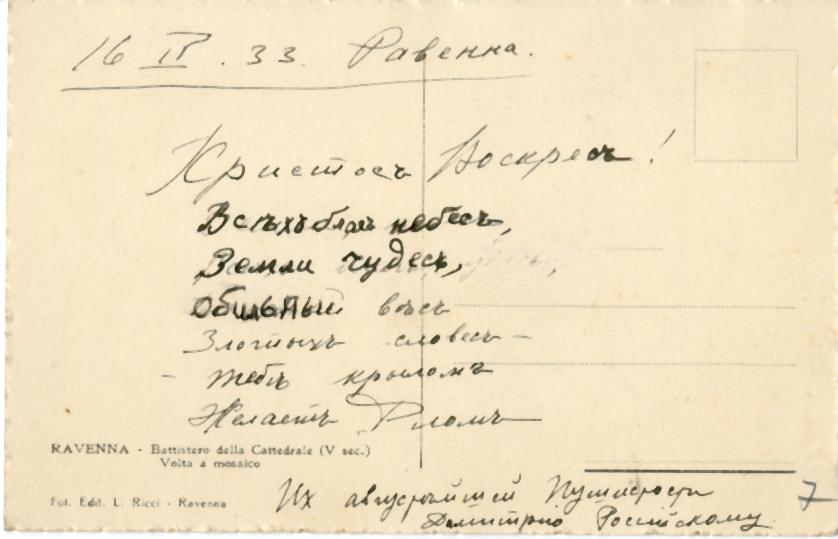 16 IV. 33. Равенна.
Христосъ Воскресъ!
Всѣхъ благъ небесъ,
Земли чудесъ,
Обильный вѣсъ
Златыхъ словесъ –
– Тебѣ крыломъ
Желаетъ
RAVENNA - Battistero della Cattedrale (V sec.)
Volta a mosaico
Fot. Edit. L. Ricci - Ravenna
Их августѣйшей Пушистости
Димитрію Россійскому.
7